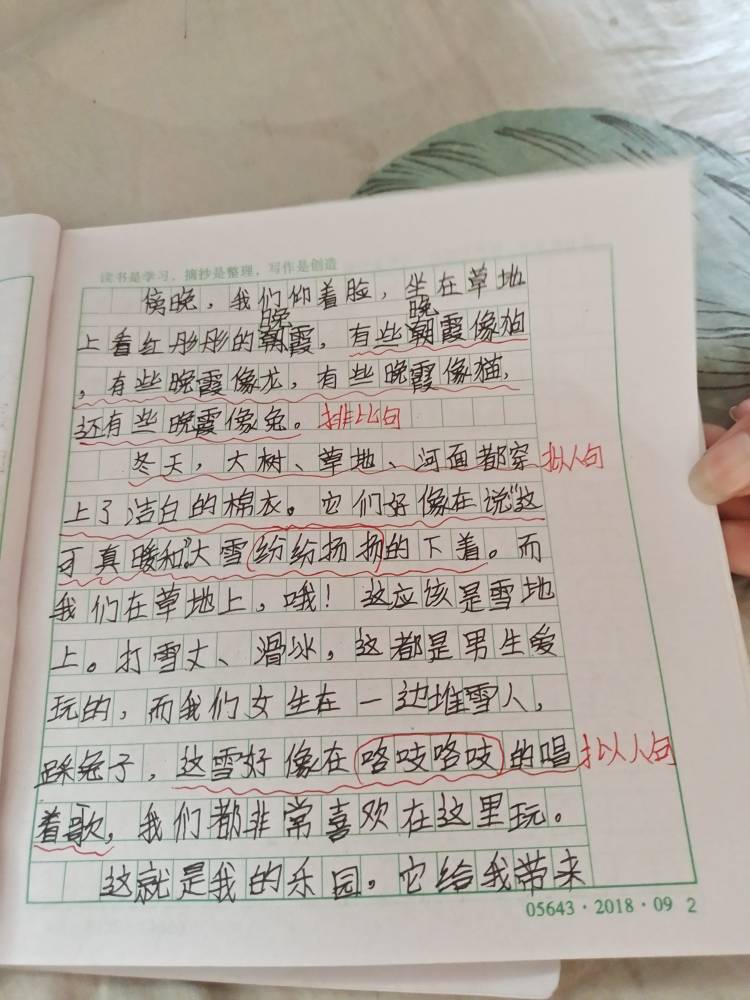 读书是学习，摘抄是整理，写作是创造
傍晚，我们仰着脸，坐在草地
晚 晚
上看红彤彤的朝霞，有些朝霞像狗
，有些晚霞像龙，有些晚霞像猫，
还有些晚霞像兔。排比句
冬天，大树、草地、河面都穿 拟人句
上了洁白的棉衣。它们好像在说“这
可真暖和”。大雪纷纷扬扬的下着。而
我们在草地上，哦！这应该是雪地
上。打雪丈、滑冰，这都是男生爱
玩的，而我们女生在一边堆雪人，
踩兔子，这雪好像在咯吱咯吱的唱 拟人句
着歌，我们都非常喜欢在这里玩。
这就是我的乐园。它给我带来
05643·2018·09 2